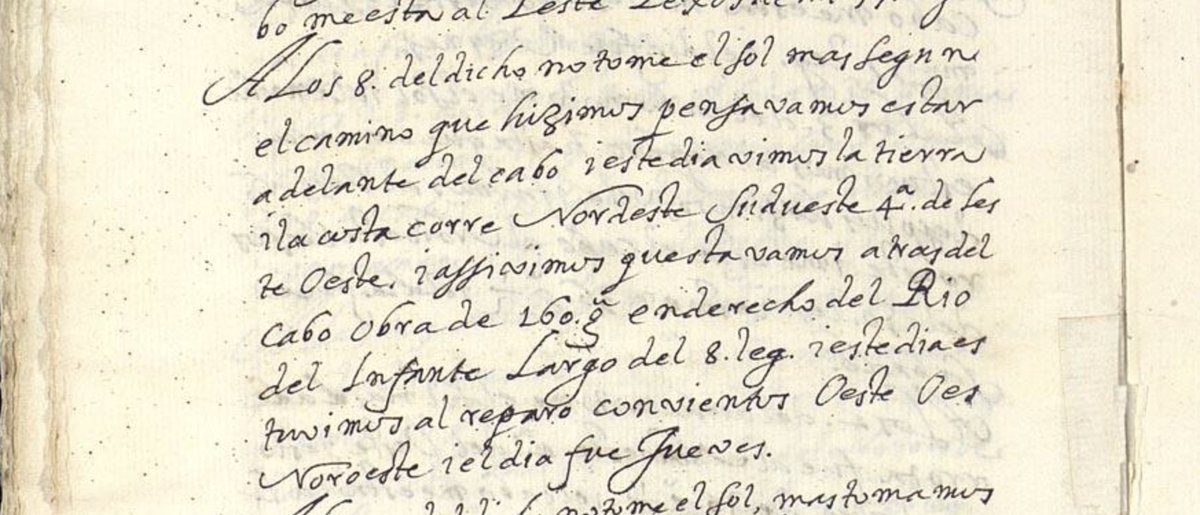 bo me esta al Leste
A Los 8. del dicho no tome el sol mas segun
el camino que hizimos pensavamos estar
adelante del cabo i este dia vimos la tierra
i la costa corre Nordeste Sudueste 4ª. de Les
te Oeste. i assi vimos questavamos atras del
cabo obra de 160. en derecho del Rio
del Infante Largo del 8. leg. i este dia es
tuvimos al reparo con vientos Oeste Oes
Noroeste i el dia fue Jueves.
no tome el sol, mas tomamos